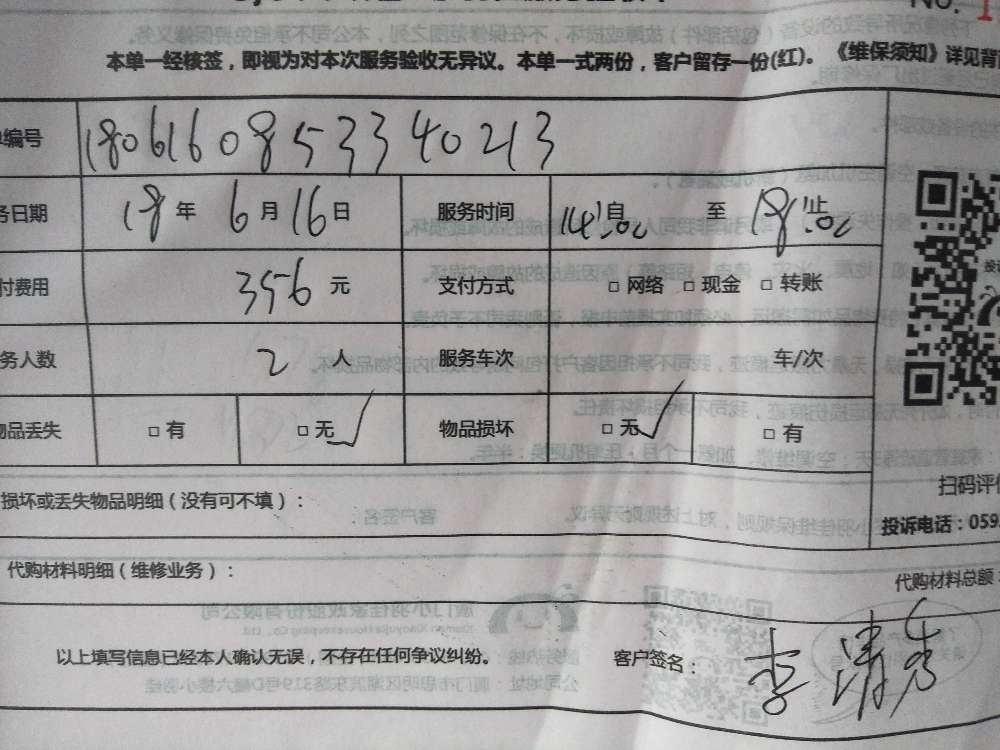 No. 1
本单一经核签，即视为对本次服务验收无异议。本单一式两份，客户留存一份(红)。《维保须知》详见背
编号 180616085334 0213
务日期 18 年 6 月 16 日 服务时间 14:00 自 至 18:00 止
付费用 356 元 支付方式 □ 网络 □ 现金 □ 转账
务人数 2 人 服务车次 车/次
物品丢失 □ 有 □ 无 ✓ 物品损坏 □ 无 ✓ □ 有
扫码评
损坏或丢失物品明细（没有可不填）：
投诉电话：059
代购材料明细（维修业务）：
代购材料总额
以上填写信息已经本人确认无误，不存在任何争议纠纷。 客户签名： 李清秀